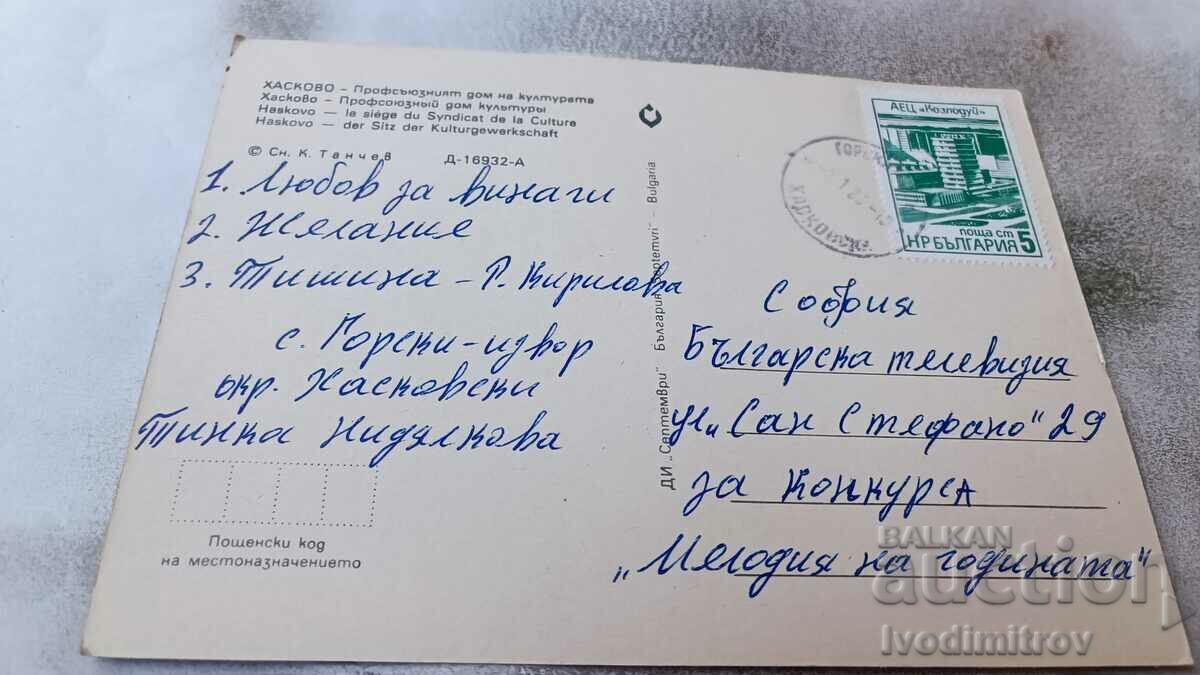 ХАСКОВО – Профсъюзният дом на културата
Хасково – Профсоюзный дом культуры
Haskovo — le siége du Syndicat de la Culture
Haskovo — der Sitz der Kulturgewerkschaft
© Сн. К. Танчев Д-16932-А
1. Любов за винаги
2. Желание
3. Тишина – Р. Кирилова
с. Горски-извор
окр. Хасковски
Тинка Нидялкова
Пощенски код
на местоназначението
ДИ „Септември" България Septemvri" – Bulgaria
АЕЦ „Козлодуй"
поща ст
НР БЪЛГАРИЯ 5
ГОРСК
ХАСКОВСК
София
Българска телевизия
ул „Сан Стефано" 29
за Конкурса
„Мелодия на годината"
BALKAN
auction
Ivodimitrov